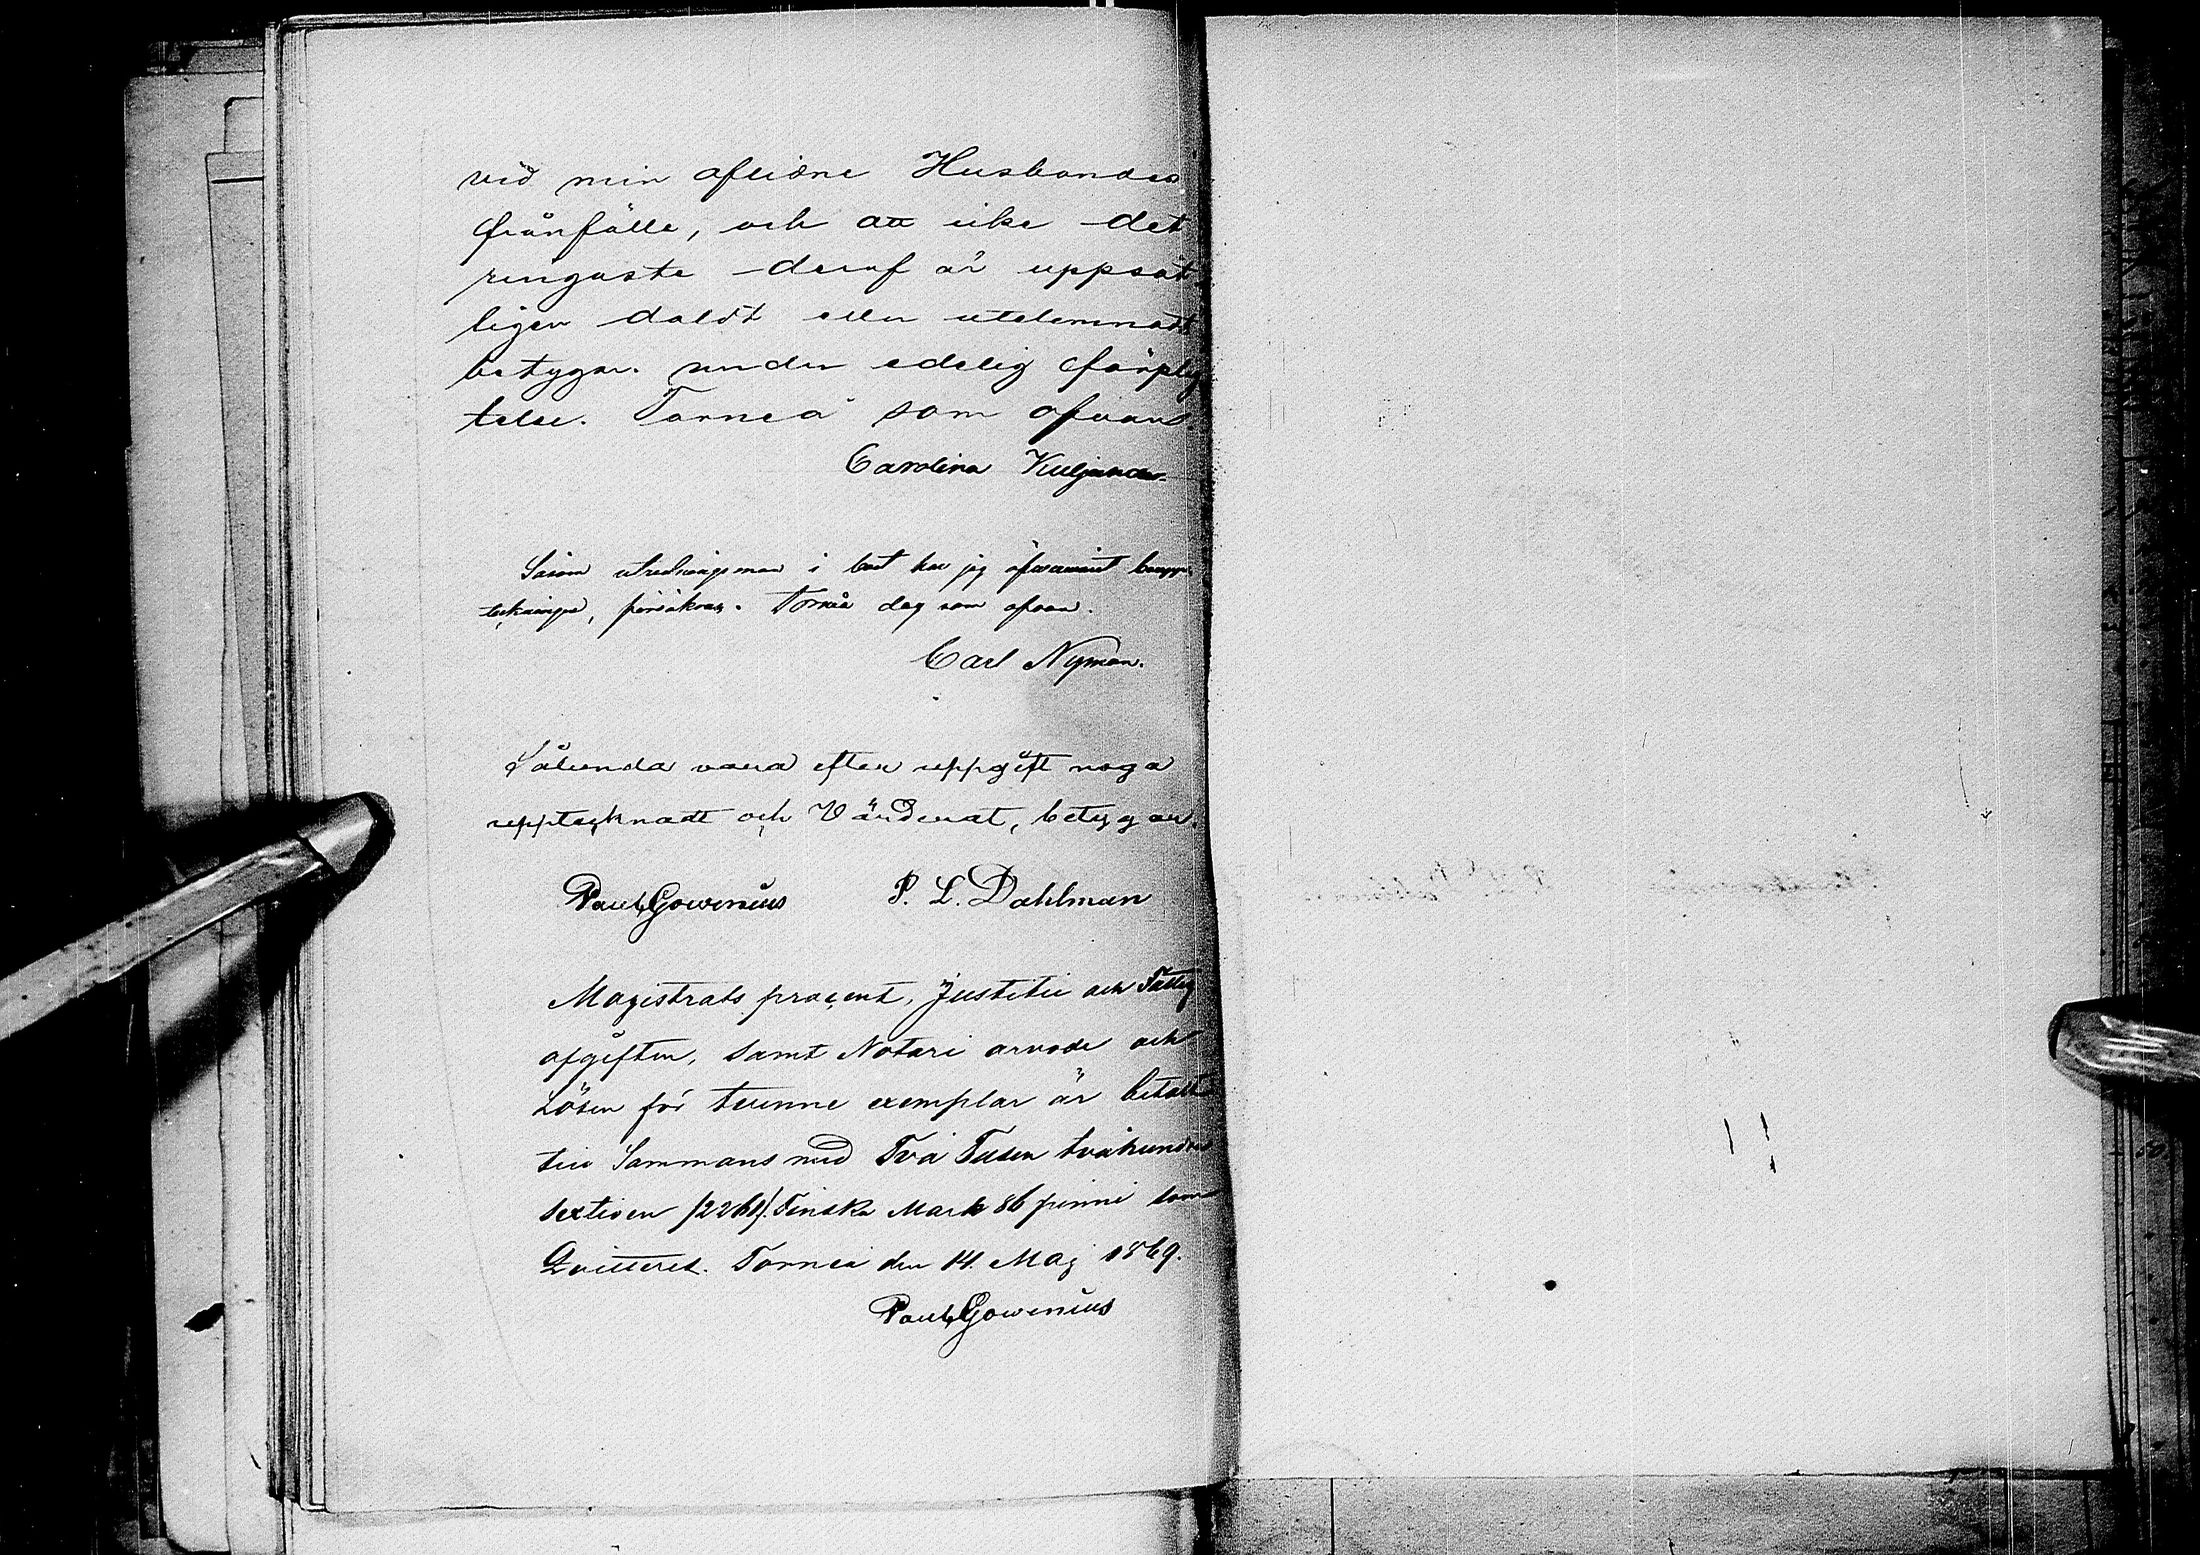 vid min aflidne Husbondes
frånfälle, och att icke det
ringaste deraf är uppsåt-
ligen doldt eller utelemnadt
betygar under edelig förplig
telse. Torneå som ofvan.
Carolina Kuljander.
Såsom utredningsman i boet har jag
teckningen, försäkras. Torneå dag som ofvan.
Carl Nyman.
Sålunda vara efter uppgift noga
upptecknadt och Värderat, betygar.
Paul Gowenius P. L. Dahlman
Magistrats procent, Justitie och Fattig
afgiften, samt Notarii arvode och
Lösen för tvenne exemplar är betalt
till Sammans med Två Tusen tvåhundra
sextioen /2261/. Finska Mark 86 penni som
Qvitteret. Torneå den 14. Maj 1869.
Paul Gowenius